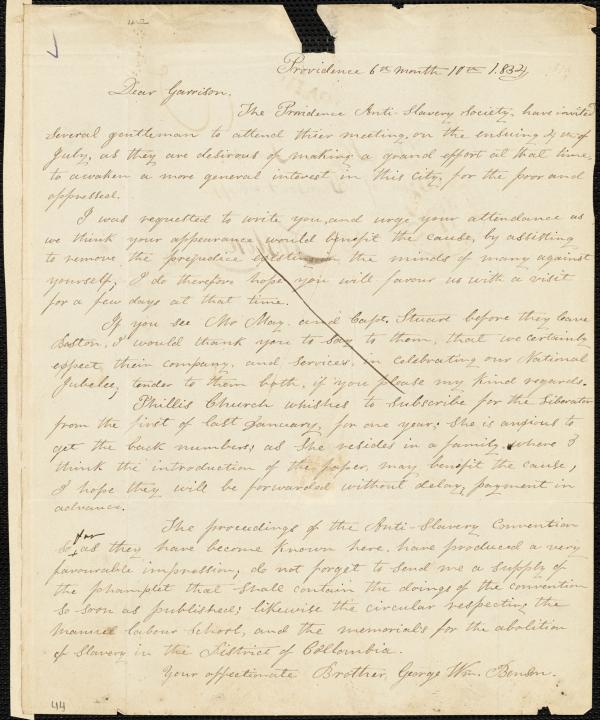 Providence 6th month 10th 1834
Dear Garrison.
The Providence Anti-Slavery Society, have invited
several gentleman to attend thier meeting, on the ensuing 4th of
July, as they are desirous of making a grand effort at that time,
to awaken a more general interest in this city, for the poor and
oppressed.
I was requested to write you, and urge your attendance as
we think your appearance would benefit the cause, by assisting
to remove the prejudice existing in the minds of many against
yourself, I do therefore hope you will favour us with a visit
for a few days at that time.
If you see Mr May. and Capt. Stuart before they leave
Boston, I would thank you to say to them, that we certainly
expect their company, and services, in celebrating our National
Jubelee, tender to them both, if you please my kind regards.
Phillis Church whishes to subscribe for the Liberator
from the first of last January, for one year; she is anxious to
get the back numbers; as she resides in a family where I
think the introduction of the paper, may benefit the cause,
I hope they will be forwarded without delay, payment in
advance.
The proceedings of the Anti-Slavery Convention
so far as they have become known here, have produced a very
favourable impression, do not forget to send me a supply of
the phamplet that shall contain the doings of the convention
so soon as published; likewise the circular respecting the
Manuel labour School, and the memorials for the abolition
of Slavery in the District of Collombia.
Your affectionate Brother, George Wm. Benson.
44